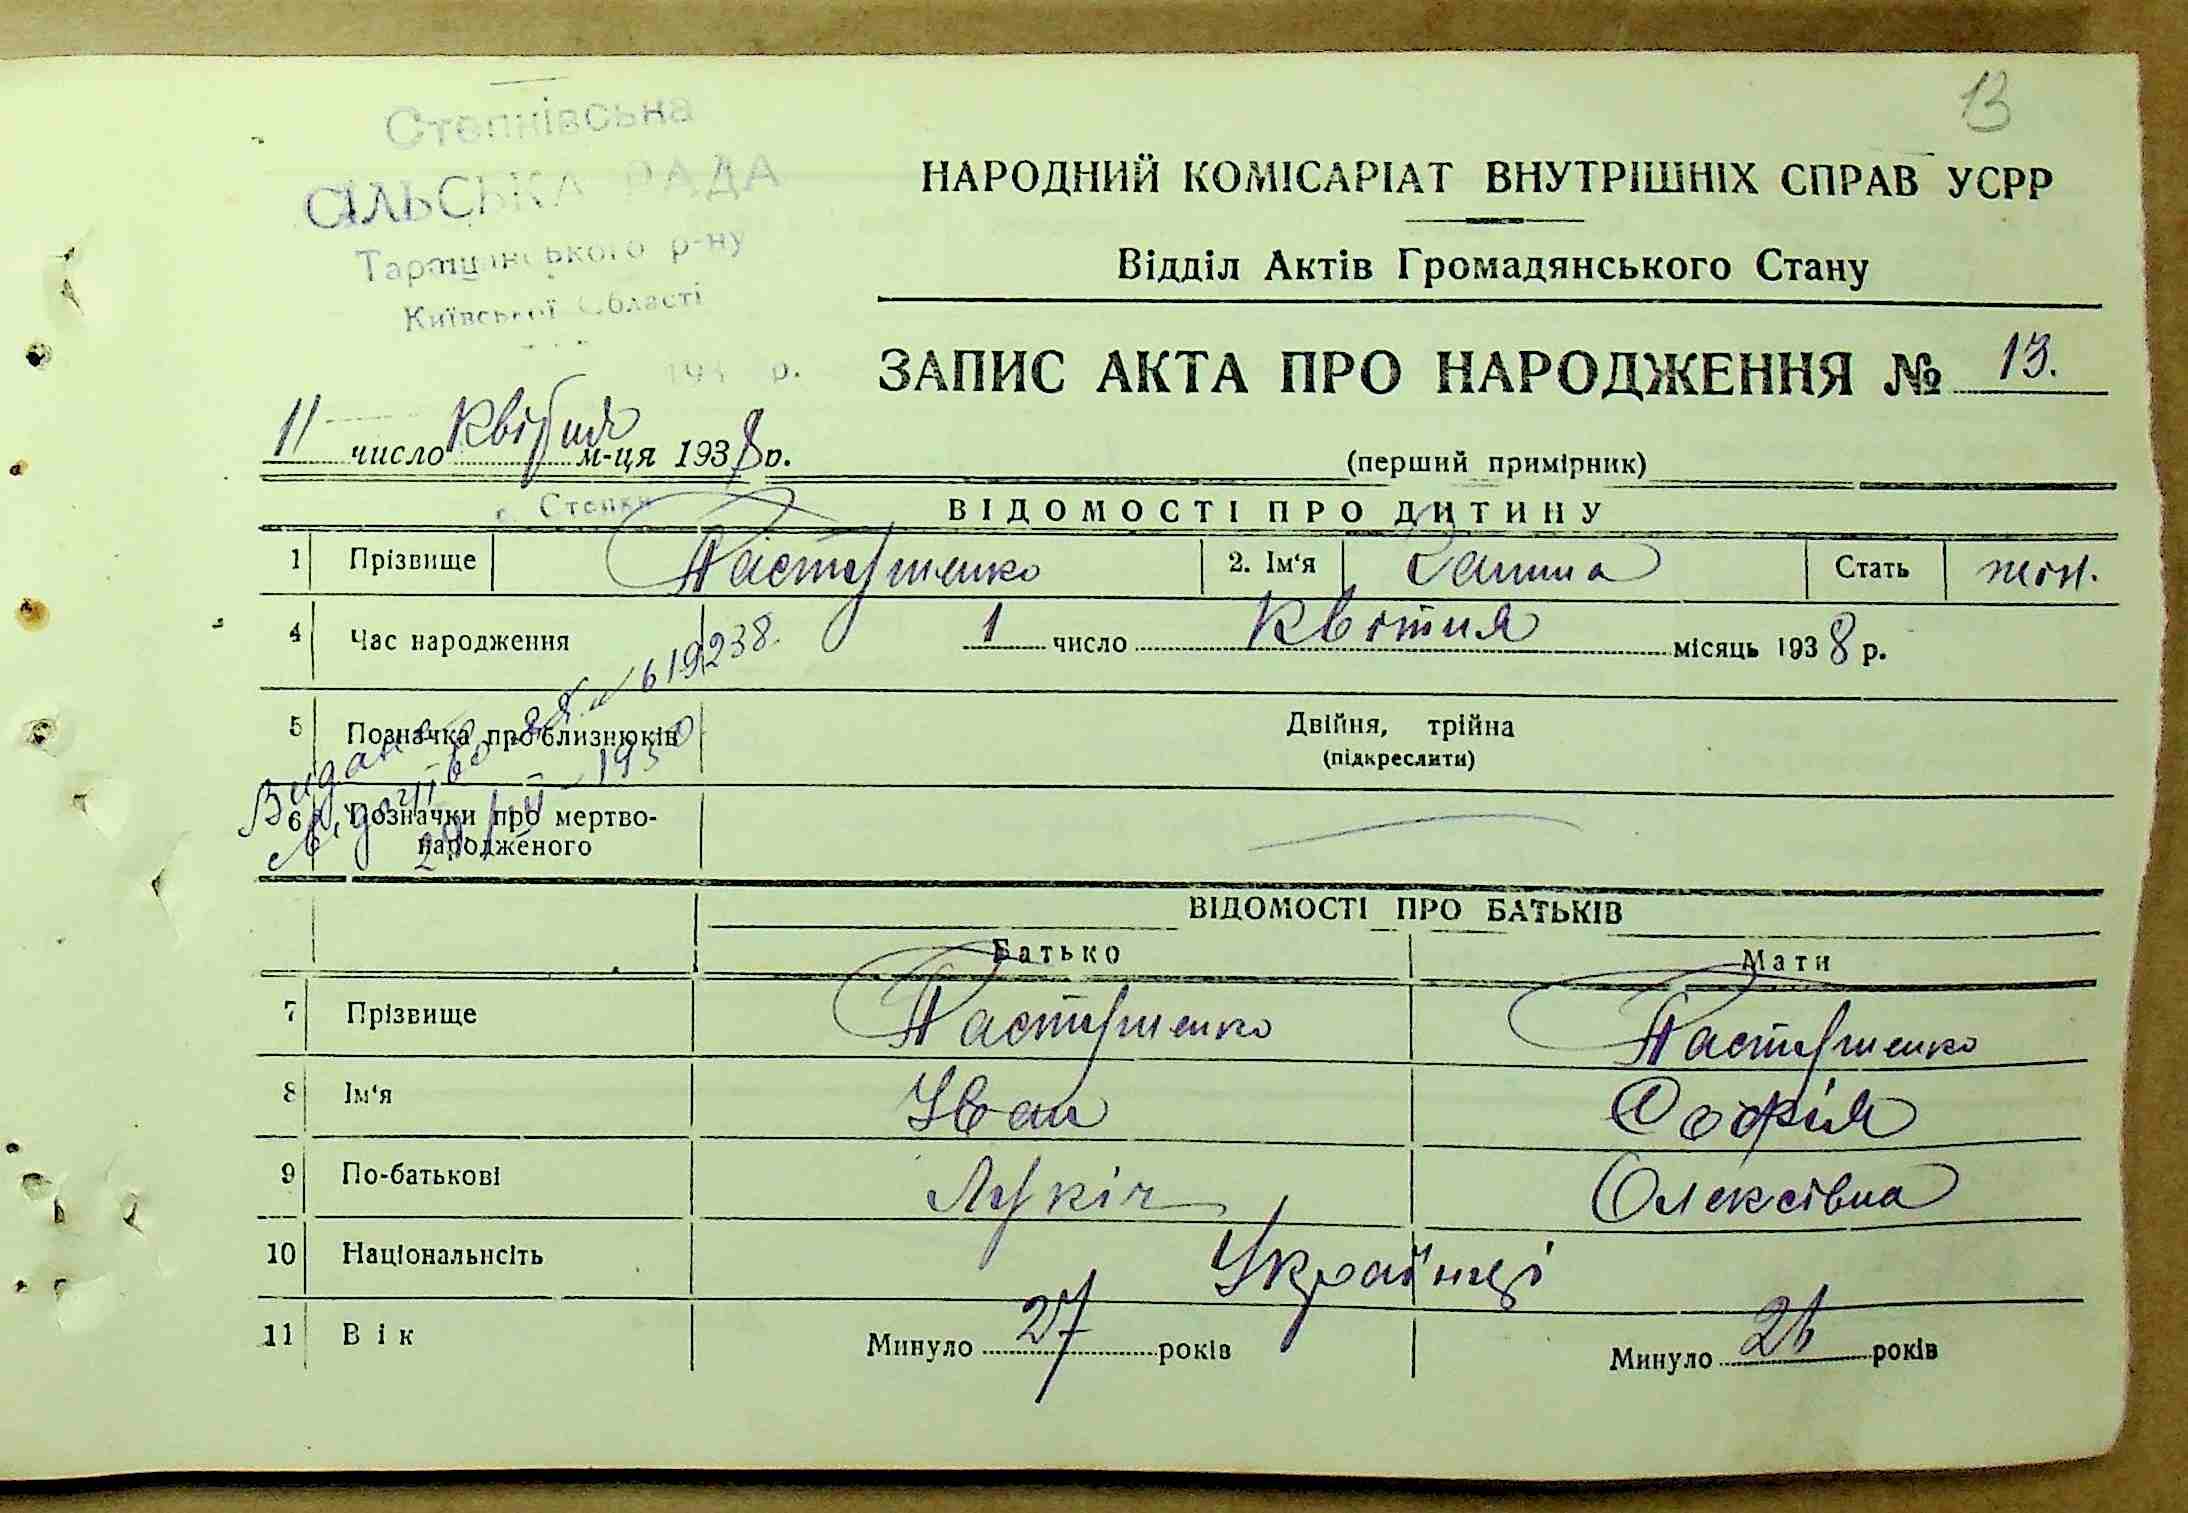 13
Степківська
СІЛЬСЬКА РАДА
Таращанського р-ну
Київської Області
194 р.
НАРОДНИЙ КОМІСАРІАТ ВНУТРІШНІХ СПРАВ УСРР
Відділ Актів Громадянського Стану
ЗАПИС АКТА ПРО НАРОДЖЕННЯ № 13.
11 число квітня м-ця 1938 р.
(перший примірник)
с. Степки
ВІДОМОСТІ ПРО ДИТИНУ
1 Прізвище Пастушенко 2. Ім‘я Ганна Стать жін.
4 Час народження 1 число квітня місяць 1938 р.
5 Позначка про близнюків Двійня, трійна
(підкреслити)
6 Позначки про мертво-
народженого
Видано
№ 619238.
1950
ВІДОМОСТІ ПРО БАТЬКІВ
Батько Мати
7 Прізвище Пастушенко Пастушенко
8 Ім‘я Іван Софія
9 По-батькові Лукіч Олексівна
10 Національнсіть Українці
11 Вік Минуло 27 років Минуло 26 років